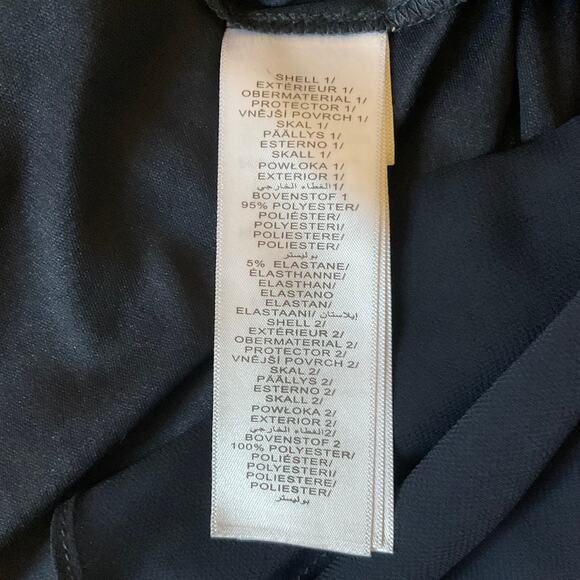 SHELL 1/
EXTÉRIEUR 1/
OBERMATERIAL 1/
PROTECTOR 1/
VNĚJŠÍ POVRCH 1/
SKAL 1/
PÄÄLLYS 1/
ESTERNO 1/
SKALL 1/
POWŁOKA 1/
EXTERIOR 1/
الغطاء الخارجي 1/
BOVENSTOF 1
95% POLYESTER/
POLIÉSTER/
POLYESTERI/
POLIESTERE/
POLIESTER/
بوليستر
5% ELASTANE/
ÉLASTHANNE/
ELASTHAN/
ELASTANO
ELASTAN/
ELASTAANI/ إيلاستان
SHELL 2/
EXTÉRIEUR 2/
OBERMATERIAL 2/
PROTECTOR 2/
VNĚJŠÍ POVRCH 2/
SKAL 2/
PÄÄLLYS 2/
ESTERNO 2/
SKALL 2/
POWŁOKA 2/
EXTERIOR 2/
الغطاء الخارجي 2/
BOVENSTOF 2
100% POLYESTER/
POLIÉSTER/
POLYESTERI/
POLIESTERE/
POLIESTER/
بوليستر